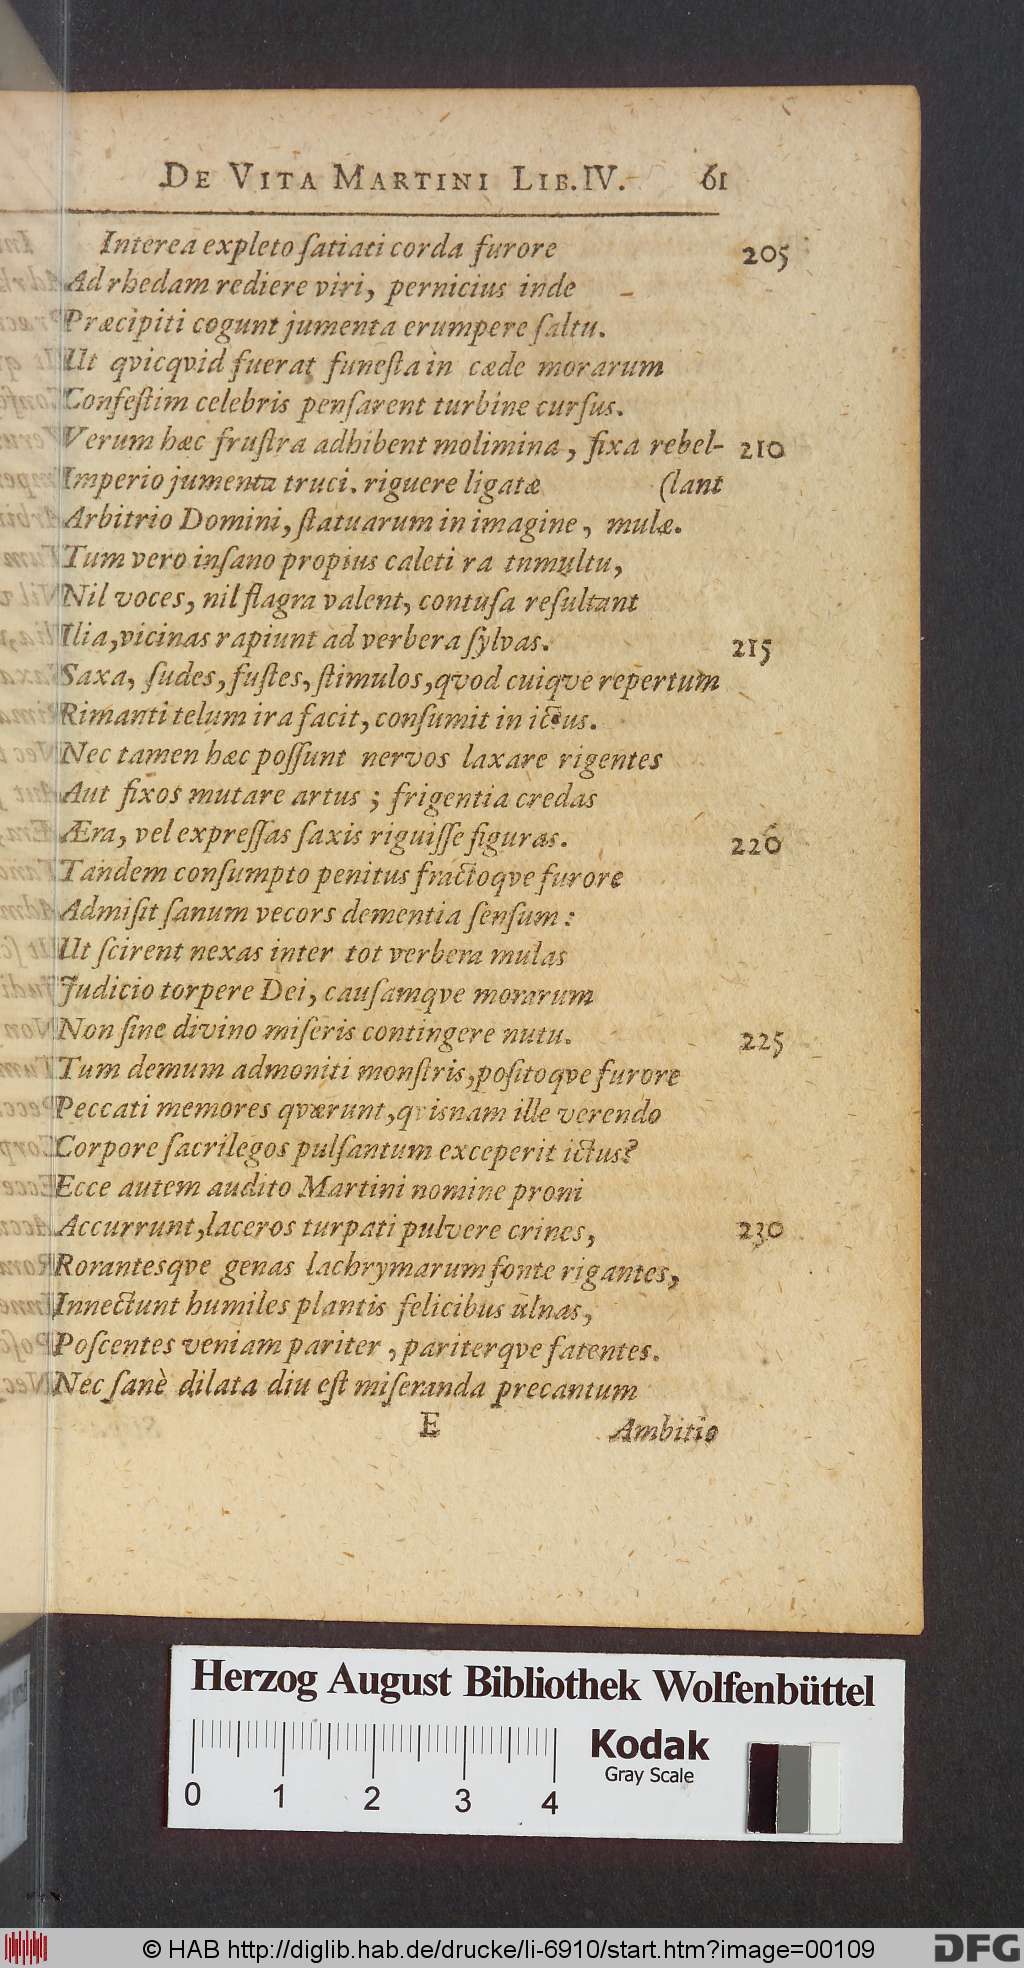 DE VITA MARTINI LIB.IV. 61
Interea expleto ſatiati corda furore 205
Ad rhedam rediere viri, pernicius inde
Præcipiti cogunt jumenta erumpere ſaltu.
Ut qvicqvid fuerat funeſta in cæde morarum
Confeſtim celebris penſarent turbine curſus.
Verum hæc fruſtra adhibent molimina, fixa rebel- 210
Imperio jumenta truci. riguere ligatæ (lant
Arbitrio Domini, ſtatuarum in imagine, mulæ.
Tum vero inſano propius caleti ra tnmultu,
Nil voces, nil flagra valent, contuſa reſultant
Ilia, vicinas rapiunt ad verbera ſylvas. 215
Saxa, ſudes, fuſtes, ſtimulos, qvod cuiqve repertum
Rimanti telum ira facit, conſumit in ictus.
Nec tamen hæc poſſunt nervos laxare rigentes
Aut fixos mutare artus; frigentia credas
Æra, vel expreſſas ſaxis riguiſſe figuras. 220
Tandem conſumpto penitus fractoqve furore
Admiſit ſanum vecors dementia ſenſum:
Ut ſcirent nexas inter tot verbera mulas
Judicio torpere Dei, cauſamqve morarum
Non ſine divino miſeris contingere nutu. 225
Tum demum admoniti monſtris, poſitoqve furore
Peccati memores qværunt, qvisnam ille verendo
Corpore ſacrilegos pulſantum exceperit ictus?
Ecce autem audito Martini nomine proni
Accurrunt, laceros turpati pulvere crines, 230
Rorantesqve genas lachrymarum fonte rigantes,
Innectunt humiles plantis felicibus ulnas,
Poſcentes veniam pariter, pariterqve fatentes.
Nec ſanè dilata diu eſt miſeranda precantum
E Ambitio
Herzog August Bibliothek Wolfenbüttel
0 1 2 3 4
Kodak
Gray Scale
© HAB http://diglib.hab.de/drucke/li-6910/start.htm?image=00109
DFG